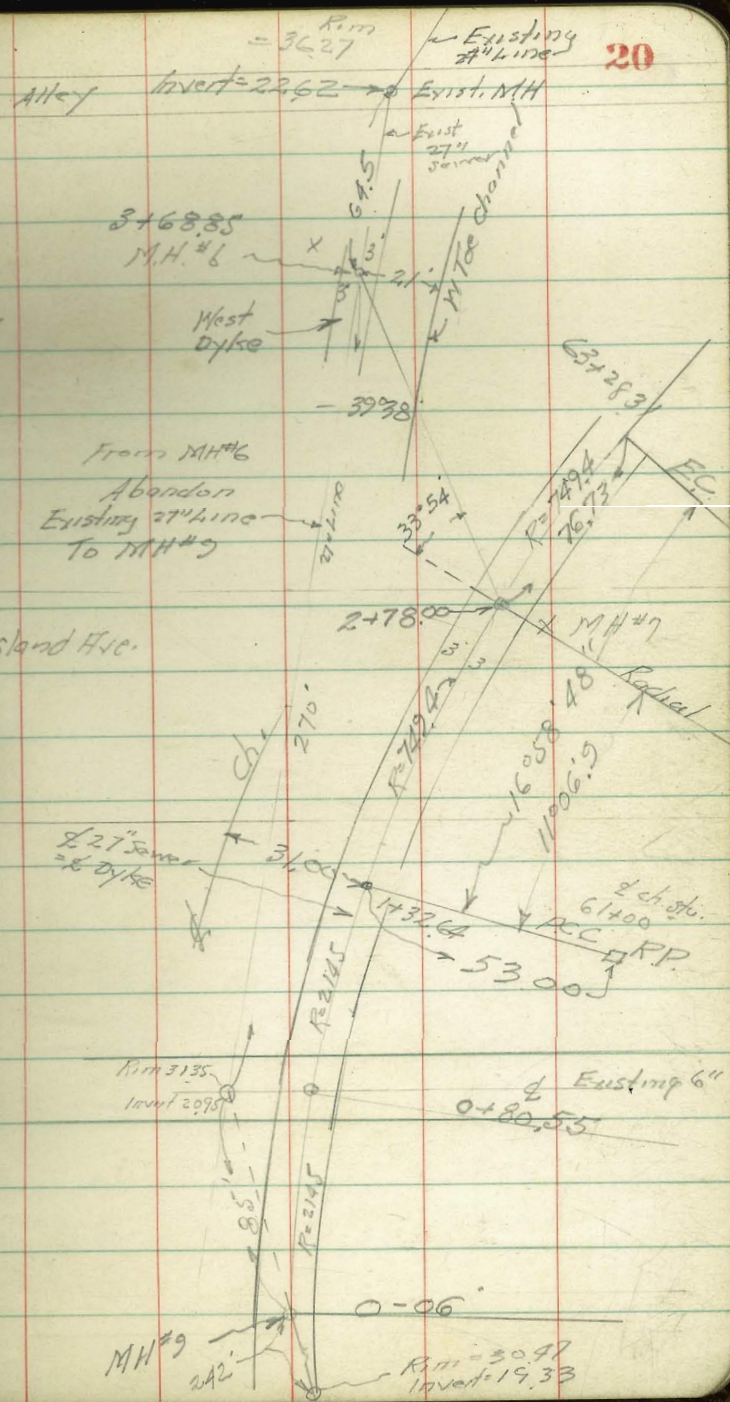 20
Rim
= 36.27
Existing
Line
Alley
Invert=22.62
Exist. MH
Exist
27"
sewer
64.5
3+68.85
M.H. #6
X
3'
3'
21'
W Toe Channel
West
Dyke
39°38'
63+28.3
E.C.
From MH#6
Abandon
Existing 27" Line
To MH#9
27" Line
33°54'
R=749.4
76.73
2+78.00
X MH #7
sland Ave.
3
3
Radial
270'
Ch.
R=749.4
16°58'48"
11°06'.9
℄ 27" Sewer
=℄ Dyke
31.00
1+32.64
℄ ch. sta.
61+00
P.C.C.
R.P.
53.00
R=2145
Rim 31.35
Invert 20.95
℄ Existing 6"
0+80.55
85'
R=2145
0-06'
MH#9
242'
Rim = 30.47
Invert=19.33